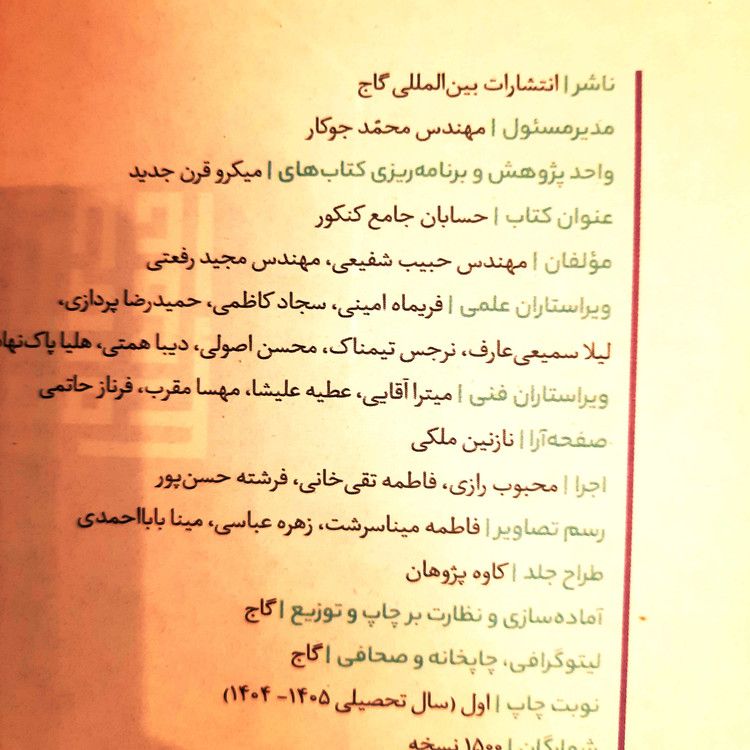 ناشر | انتشارات بین‌المللی گاج
مدیرمسئول | مهندس محمّد جوکار
واحد پژوهش و برنامه‌ریزی کتاب‌های | میکرو قرن جدید
عنوان کتاب | حسابان جامع کنکور
مؤلفان | مهندس حبیب شفیعی، مهندس مجید رفعتی
ویراستاران علمی | فریماه امینی، سجاد کاظمی، حمیدرضا پردازی،
لیلا سمیعی‌عارف، نرجس تیمناک، محسن اصولی، دیبا همتی، هلیا پاک‌نهاد
ویراستاران فنی | میترا آقایی، عطیه علیشا، مهسا مقرب، فرناز حاتمی
صفحه‌آرا | نازنین ملکی
اجرا | محبوب رازی، فاطمه تقی‌خانی، فرشته حسن‌پور
رسم تصاویر | فاطمه میناسرشت، زهره عباسی، مینا بابااحمدی
طراح جلد | کاوه پژوهان
آماده‌سازی و نظارت بر چاپ و توزیع | گاج
لیتوگرافی، چاپخانه و صحافی | گاج
نوبت چاپ | اول (سال تحصیلی ۱۴۰۵- ۱۴۰۴)
شمارگان | ۱۵۰۰ نسخه